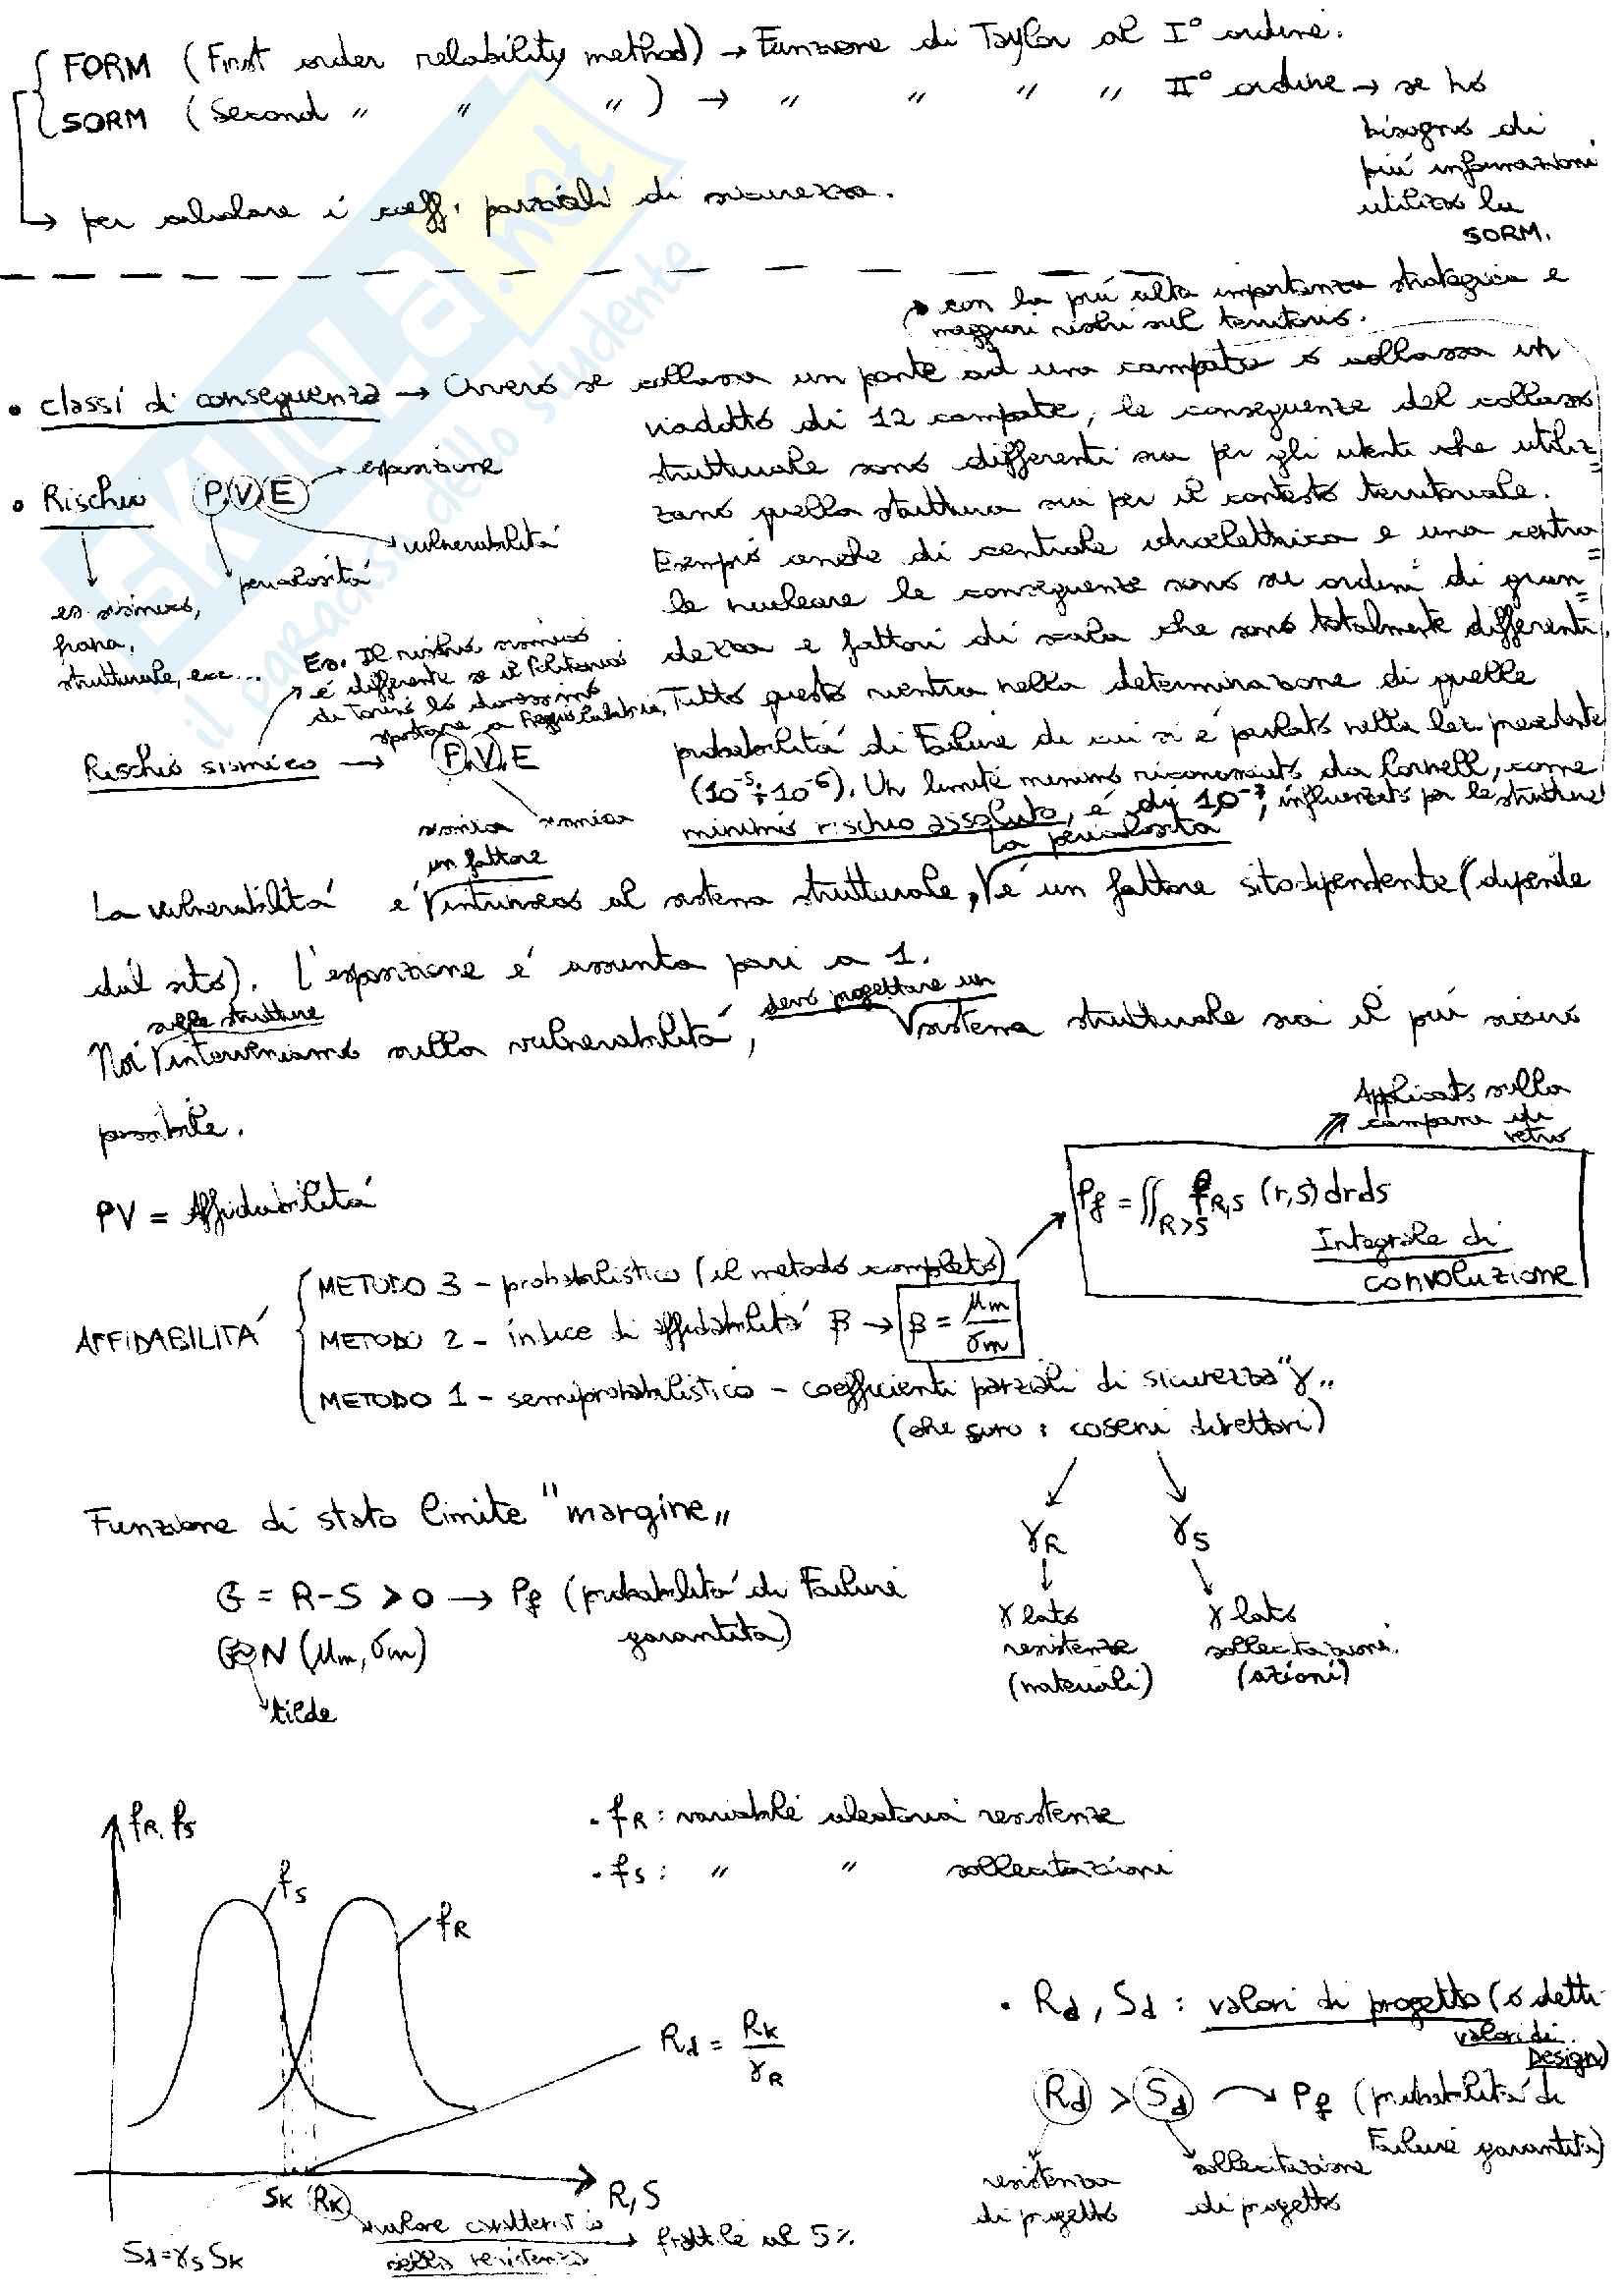 FORM (First order relability method) → Funzione di Taylor al I° ordine.
SORM (Second " " ") → " " " " II° ordine → se ho
bisogno di
più informazioni
utilizzo la
SORM.
↳ per calcolare i coeff. parziali di sicurezza.
con la più alta importanza strategica e
maggiori rischi sul territorio.
• classi di conseguenza → Ovvero se collassa un ponte ad una campata o collassa un
viadotto di 12 campate, le conseguenze del collasso
strutturale sono differenti sia per gli utenti che utiliz=
zano quella struttura sia per il contesto territoriale.
Esempio anche di centrale idroelettrica e una centra=
le nucleare le conseguenze sono su ordini di gran=
dezza e fattori di scala che sono totalmente differenti.
Tutto questo rientra nella determinazione di quelle
probabilità di Failure di cui si è parlato nella lez. precedente
(10⁻⁵÷10⁻⁶). Un limite minimo riconosciuto da Cornell, come
minimo rischio assoluto, è di 10⁻⁷, influenzato per le strutture
• Rischio P.V.E → esposizione
vulnerabilità
pericolosità
es. sismico,
frana,
strutturale, ecc...
Es. Il rischio sismico
è differente se il Politecnico
di Torino lo dovessimo
spostare a Reggio Calabria.
Rischio sismico → P.V.E
sismica sismica
un fattore
La pericolosità
La vulnerabilità è intrinseco al sistema strutturale, è un fattore sito dipendente (dipende
dal sito). L'esposizione è assunta pari a 1.
sulle strutture
devo progettare un
Noi interveniamo sulla vulnerabilità, sistema strutturale sia il più sicuro
possibile.
Applicato sulla
campana di
retro
PV = Affidabilità
Pf = ∬R>S fR,S (r,s) drds
Integrale di
convoluzione
AFFIDABILITÀ
METODO 3 - probabilistico (il metodo completo)
METODO 2 - indice di affidabilità β → β = μm/σm
METODO 1 - semiprobabilistico - coefficienti parziali di sicurezza "γ"
(che sono i coseni direttori)
γR γS
γ lato
resistenze
(materiali)
γ lato
sollecitazioni.
(azioni)
Funzione di stato limite "margine"
G = R-S > 0 → Pf (probabilità di Failure
garantita)
G~N (μm, σm)
tilde
fR, fS
• fR: variabile aleatoria resistenze
• fS: " " sollecitazioni
fS
fR
Rd = Rk/γR
• Rd, Sd : valori di progetto (o detti
valori di
Design)
Rd > Sd → Pf (probabilità di
Failure garantita)
resistenza
di progetto
sollecitazione
di progetto
Sk Rk R, S
valore caratteristico
della resistenza → frattile al 5%
Sd=γS Sk
SKUOLA.net
il paradiso dello studente